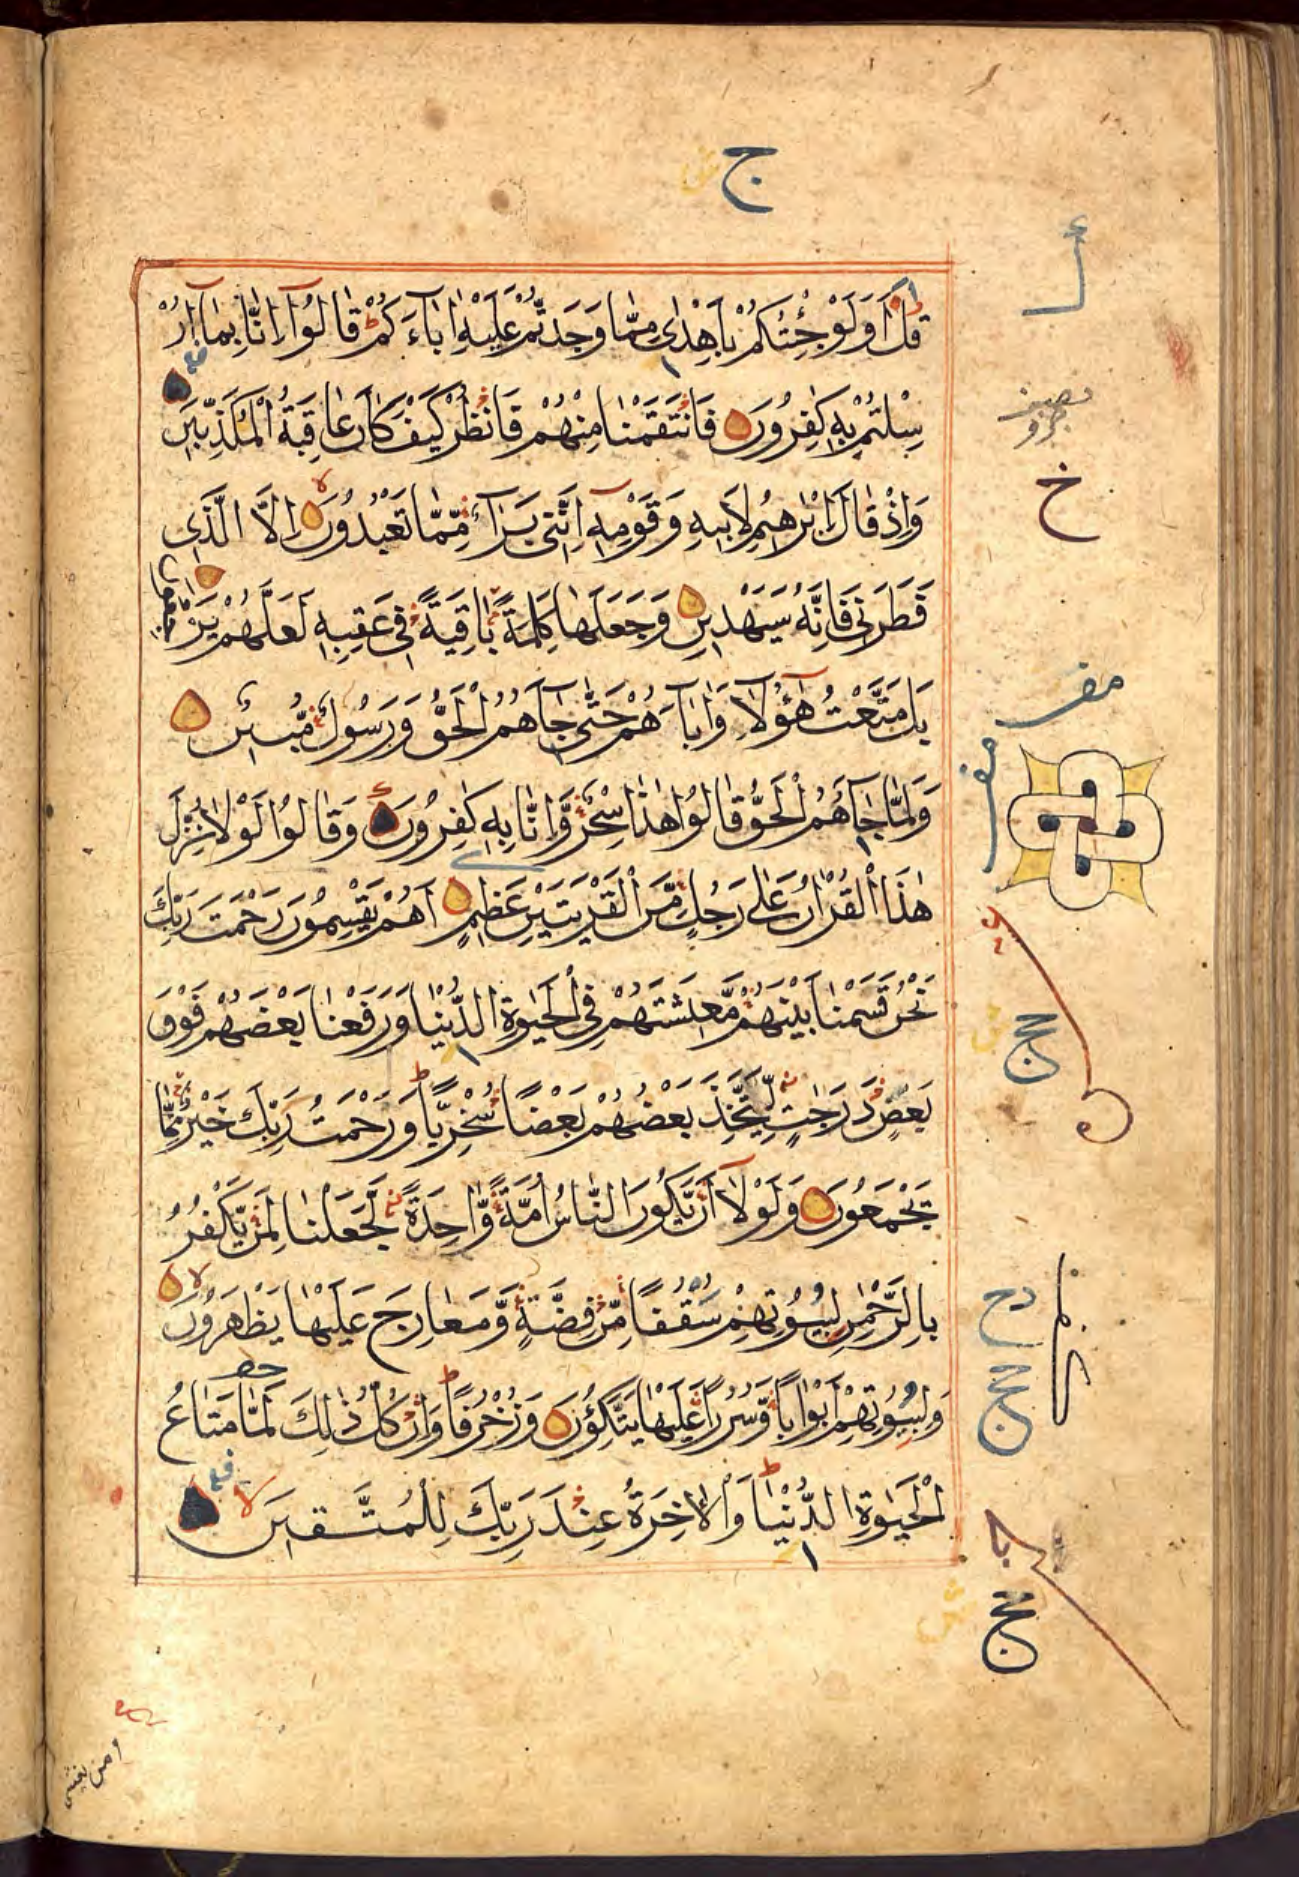 ج
قُلْ اَوَلَوْ جِئْتُكُمْ بِاَهْدٰى مِمَّا وَجَدْتُّمْ عَلَيْهِ اٰبَاءَكُمْ قَالُوْٓا اِنَّا بِمَآ اُرْ
سِلْتُمْ بِهٖ كٰفِرُوْنَ فَانْتَقَمْنَا مِنْهُمْ فَانْظُرْ كَيْفَ كَانَ عَاقِبَةُ الْمُكَذِّبِيْنَ
وَاِذْ قَالَ اِبْرٰهِيْمُ لِاَبِيْهِ وَقَوْمِهٖٓ اِنَّنِىْ بَرَآءٌ مِّمَّا تَعْبُدُوْنَ اِلَّا الَّذِى
فَطَرَنِىْ فَاِنَّهٗ سَيَهْدِيْنِ وَجَعَلَهَا كَلِمَةً بَاقِيَةً فِىْ عَقِبِهٖ لَعَلَّهُمْ يَرْجِعُوْنَ
بَلْ مَتَّعْتُ هٰٓؤُلَآءِ وَاٰبَآءَهُمْ حَتّٰى جَآءَهُمُ الْحَقُّ وَرَسُوْلٌ مُّبِيْنٌ
وَلَمَّا جَآءَهُمُ الْحَقُّ قَالُوْا هٰذَا سِحْرٌ وَّاِنَّا بِهٖ كٰفِرُوْنَ وَقَالُوْا لَوْلَا نُزِّلَ
هٰذَا الْقُرْاٰنُ عَلٰى رَجُلٍ مِّنَ الْقَرْيَتَيْنِ عَظِيْمٍ اَهُمْ يَقْسِمُوْنَ رَحْمَتَ رَبِّكَ
نَحْنُ قَسَمْنَا بَيْنَهُمْ مَّعِيْشَتَهُمْ فِى الْحَيٰوةِ الدُّنْيَا وَرَفَعْنَا بَعْضَهُمْ فَوْقَ
بَعْضٍ دَرَجٰتٍ لِّيَتَّخِذَ بَعْضُهُمْ بَعْضًا سُخْرِيًّا وَرَحْمَتُ رَبِّكَ خَيْرٌ مِّمَّا
يَجْمَعُوْنَ وَلَوْلَآ اَنْ يَّكُوْنَ النَّاسُ اُمَّةً وَّاحِدَةً لَّجَعَلْنَا لِمَنْ يَّكْفُرُ
بِالرَّحْمٰنِ لِبُيُوْتِهِمْ سُقُفًا مِّنْ فِضَّةٍ وَّمَعَارِجَ عَلَيْهَا يَظْهَرُوْنَ
وَلِبُيُوْتِهِمْ اَبْوَابًا وَّسُرُرًا عَلَيْهَا يَتَّكِئُوْنَ وَزُخْرُفًا وَاِنْ كُلُّ ذٰلِكَ لَمَّا مَتَاعُ
الْحَيٰوةِ الدُّنْيَا وَالْاٰخِرَةُ عِنْدَ رَبِّكَ لِلْمُتَّقِيْنَ
خ
ومن يعش